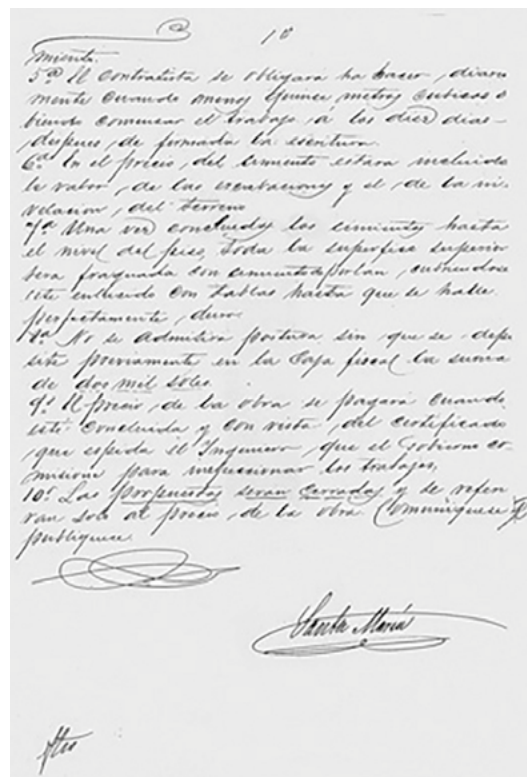 10
miento.
5ª El Contratista se obligará ha hacer, diaria
mente cuando menos quince metros cubicos de
biendo comensar el trabajo á los diez dias
despues de firmada la escritura.
6ª En el precio, del cimiento estara incluido
le valor, de las escabaciones y el de la ni
velacion, del terreno
7ª Una vez concluidos los cimientos hasta
el nivel del piso, toda la superficie superior
sera fraguada con cimiento de Porlan, cubriendose
este enlucido con tablas hasta que se halle
perfectamente, duro.
8ª No se admitira postura sin que se depo
site previamente en la Caja fiscal la suma
de dos mil soles
9ª El precio, de la obra se pagará cuando
esté concluida y con vista, del certificado
que espida el Ingeniero, que el Gobierno co
misione para inspeccionar los trabajos,
10ª Las propuestas seran cerradas y se referi
ran solo al precio, de la obra Comuniquese y
publiquese
Santa María